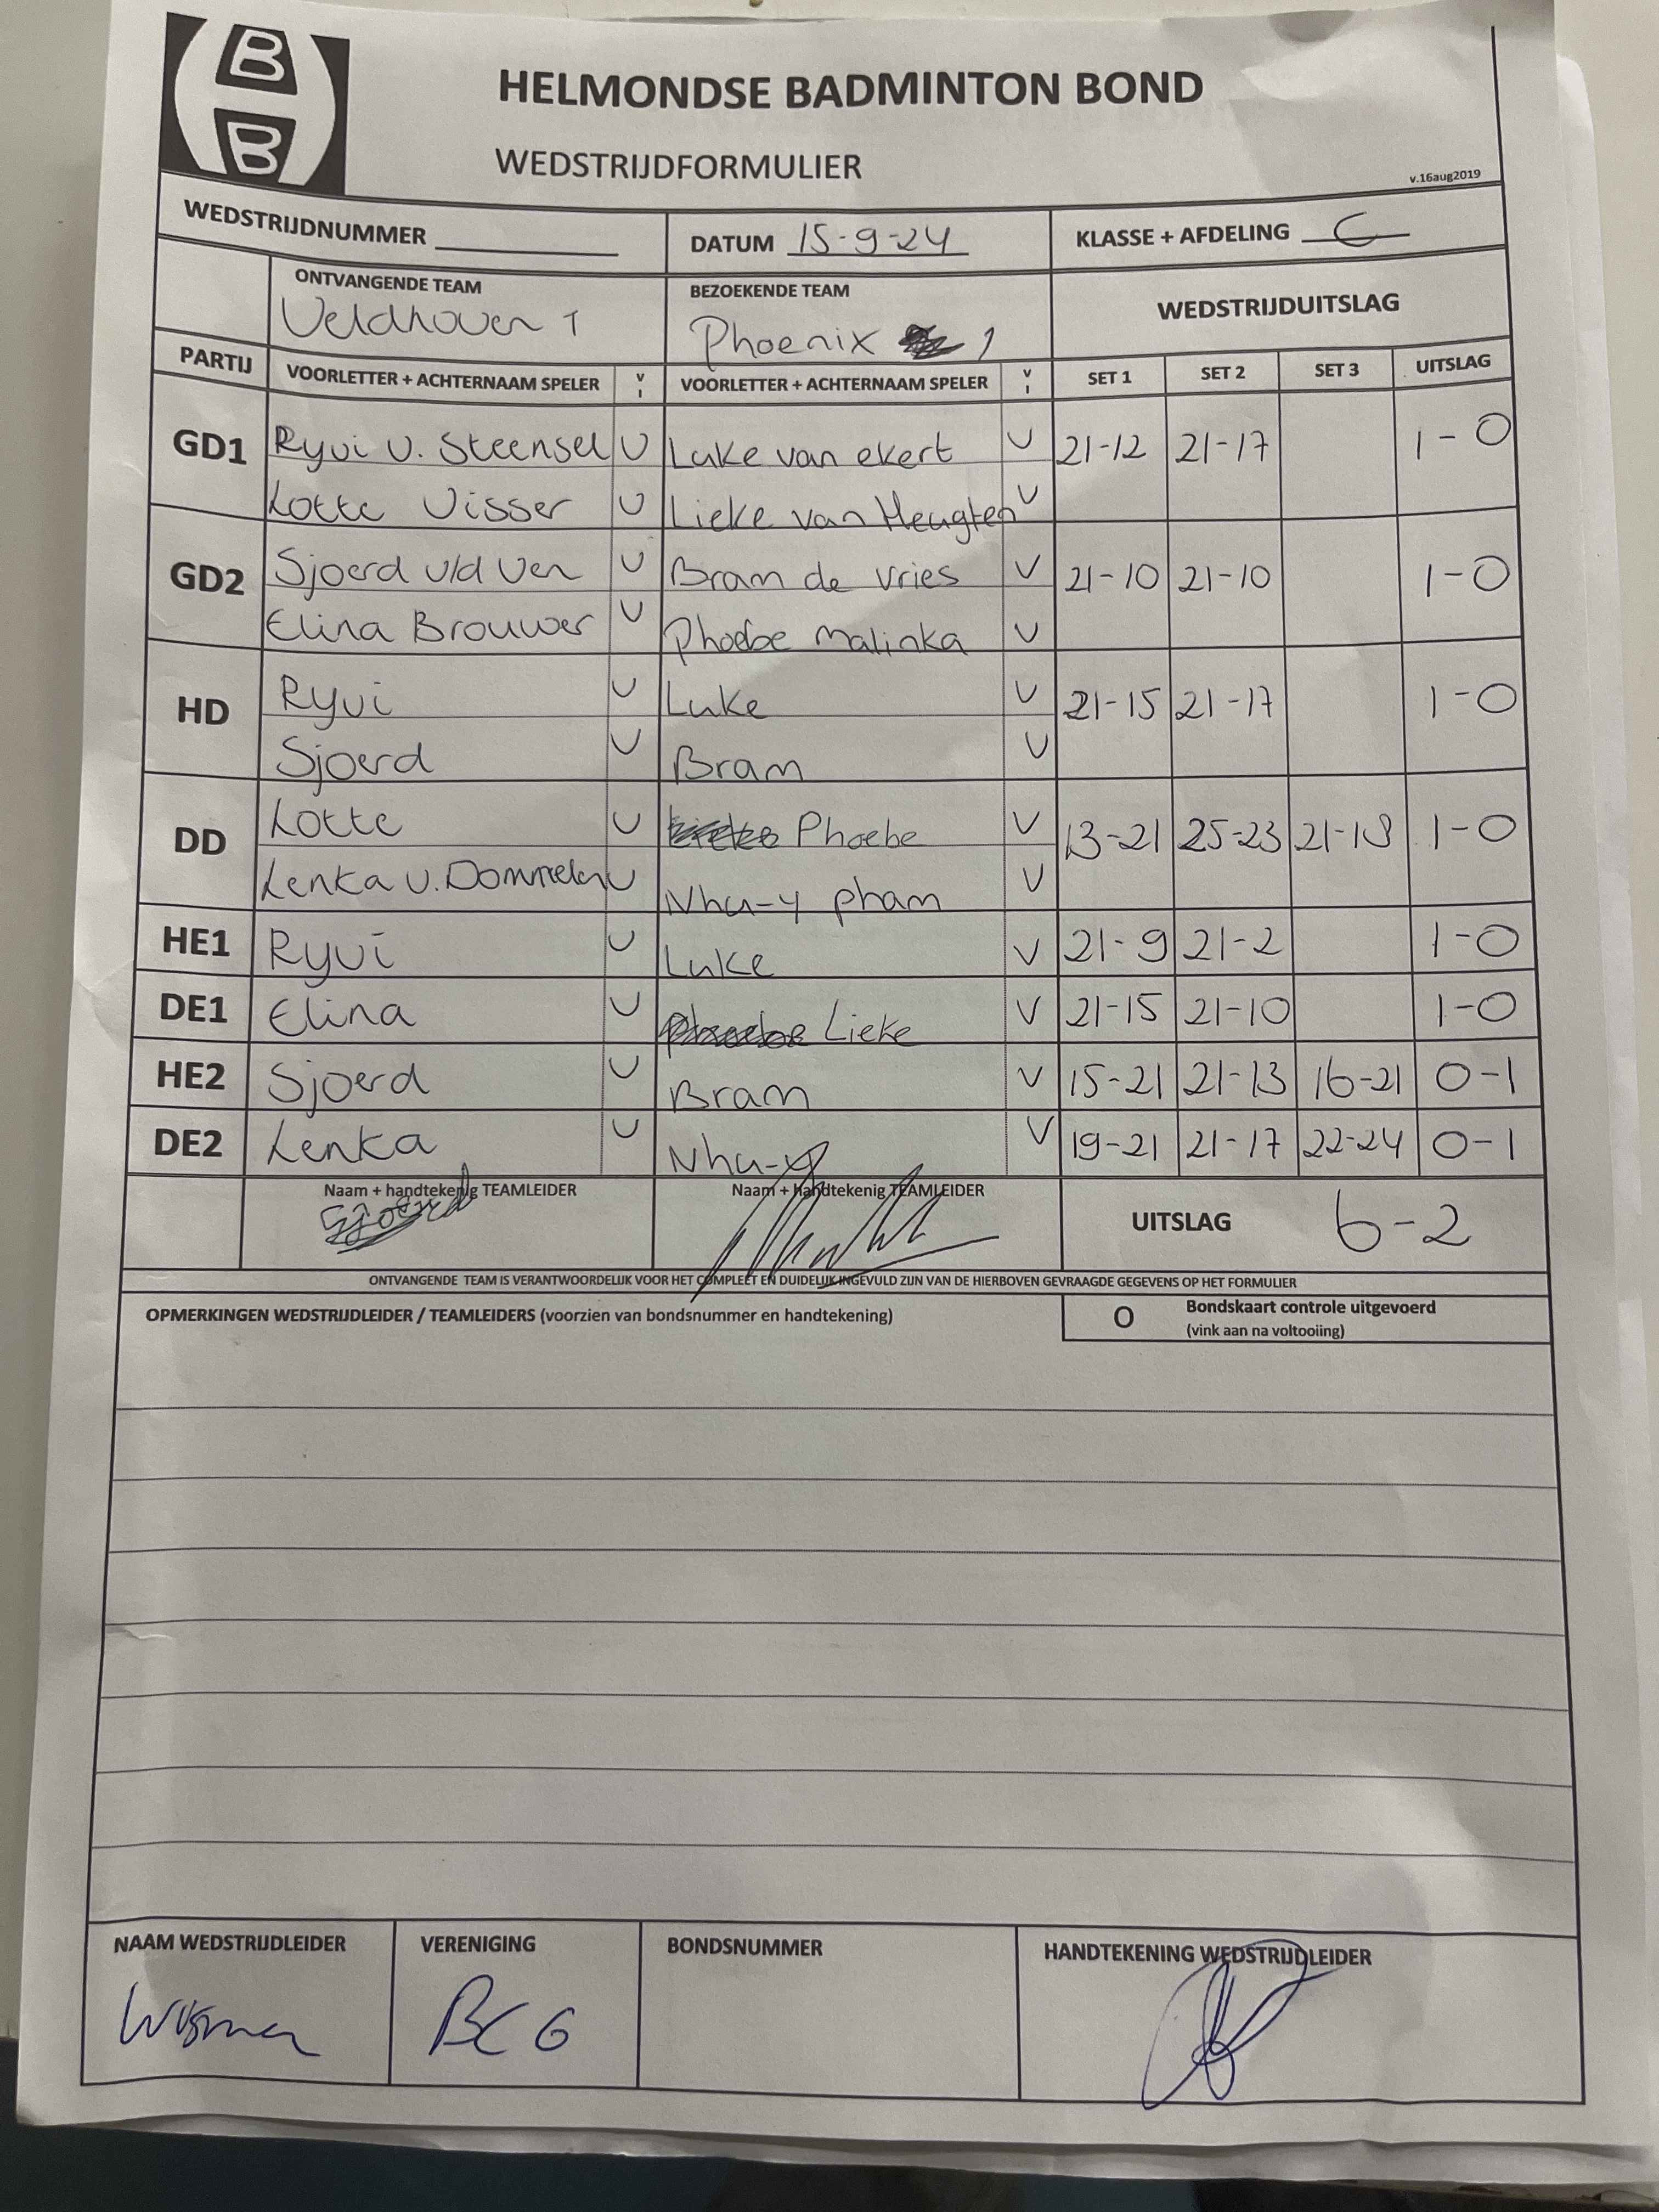 B
B
HELMONDSE BADMINTON BOND
WEDSTRIJDFORMULIER
v.16aug2019
WEDSTRIJDNUMMER
DATUM 15-9-24
KLASSE + AFDELING C
ONTVANGENDE TEAM
Veldhoven 1
BEZOEKENDE TEAM
Phoenix 1
WEDSTRIJDUITSLAG
PARTIJ VOORLETTER + ACHTERNAAM SPELER V I VOORLETTER + ACHTERNAAM SPELER V I SET 1 SET 2 SET 3 UITSLAG
GD1 Ryvi v. Steensel V Luke van ekert V 21-12 21-17 1-0
Lotte Visser V Lieke van Heugten V
GD2 Sjoerd v/d Ven V Bram de Vries V 21-10 21-10 1-0
Elina Brouwer V Phoebe Malinka V
HD Ryvi V Luke V 21-15 21-17 1-0
Sjoerd V Bram V
DD Lotte V Lieke Phoebe V 13-21 25-23 21-18 1-0
Lenka v. Dommelen V Nhu-y pham V
HE1 Ryvi V Luke V 21-9 21-2 1-0
DE1 Elina V Phoebe Lieke V 21-15 21-10 1-0
HE2 Sjoerd V Bram V 15-21 21-13 16-21 0-1
DE2 Lenka V Nhu-y V 19-21 21-17 22-24 0-1
Naam + handtekenig TEAMLEIDER
Sjoerd
Naam + handtekenig TEAMLEIDER
UITSLAG 6-2
ONTVANGENDE TEAM IS VERANTWOORDELIJK VOOR HET COMPLEET EN DUIDELIJK INGEVULD ZIJN VAN DE HIERBOVEN GEVRAAGDE GEGEVENS OP HET FORMULIER
OPMERKINGEN WEDSTRIJDLEIDER / TEAMLEIDERS (voorzien van bondsnummer en handtekening)
O Bondskaart controle uitgevoerd
(vink aan na voltooiing)
NAAM WEDSTRIJDLEIDER
VERENIGING
BCG
BONDSNUMMER
HANDTEKENING WEDSTRIJDLEIDER